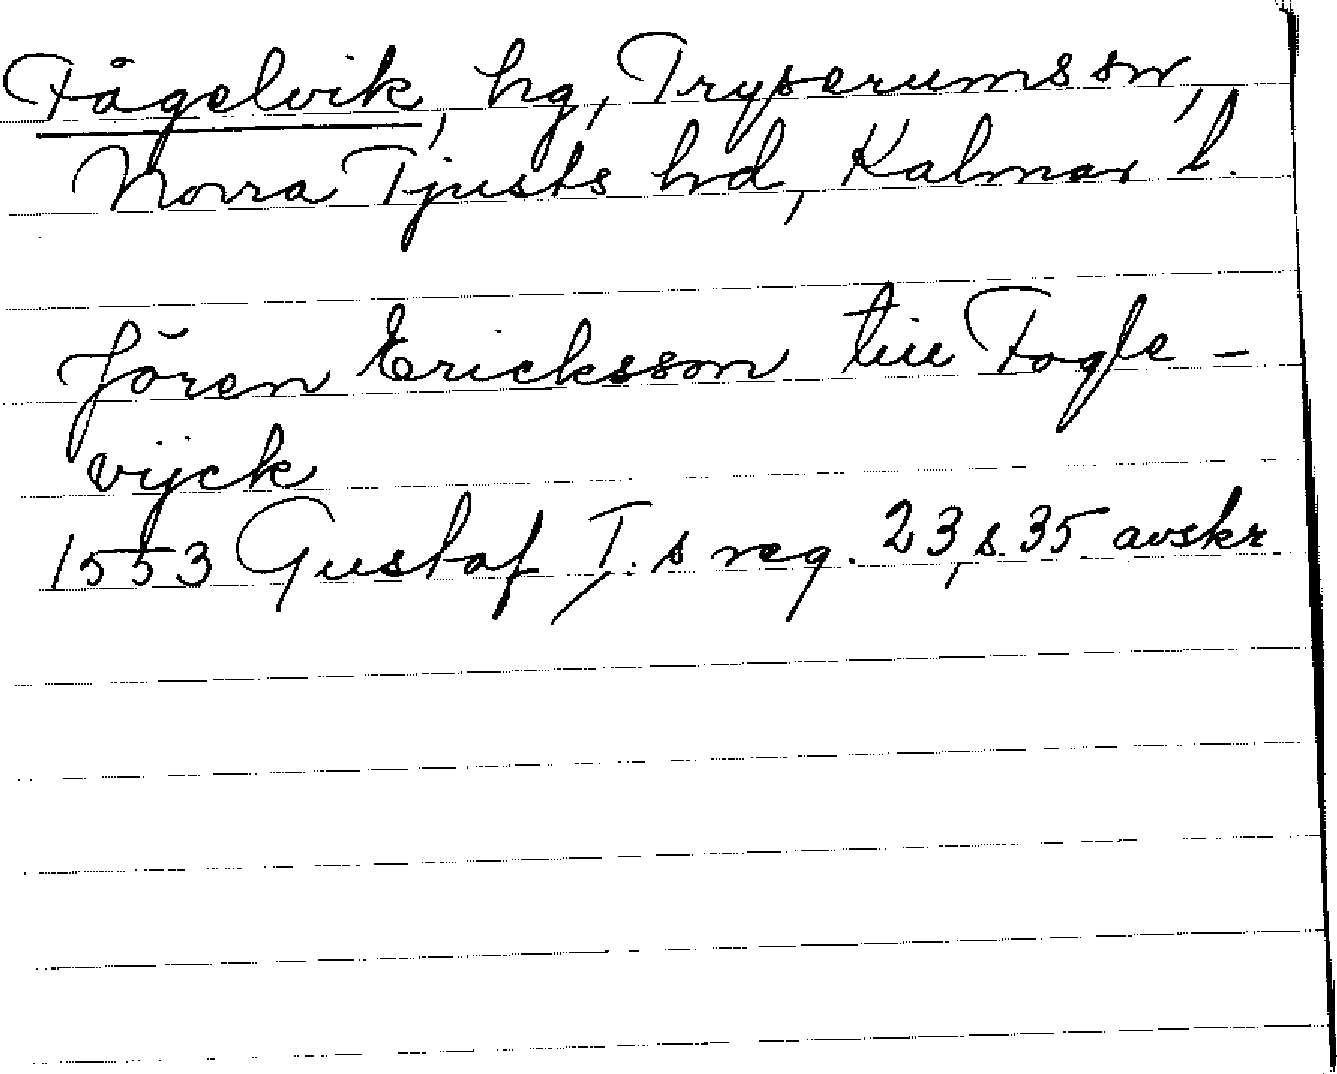 Fågelvik, hg, Tryserums sn,
Norra Tjusts hd, Kalmar l.
Jören Ericksson till Fogle-
vijck
1553 Gustaf I.s reg. 23, s. 35 avskr